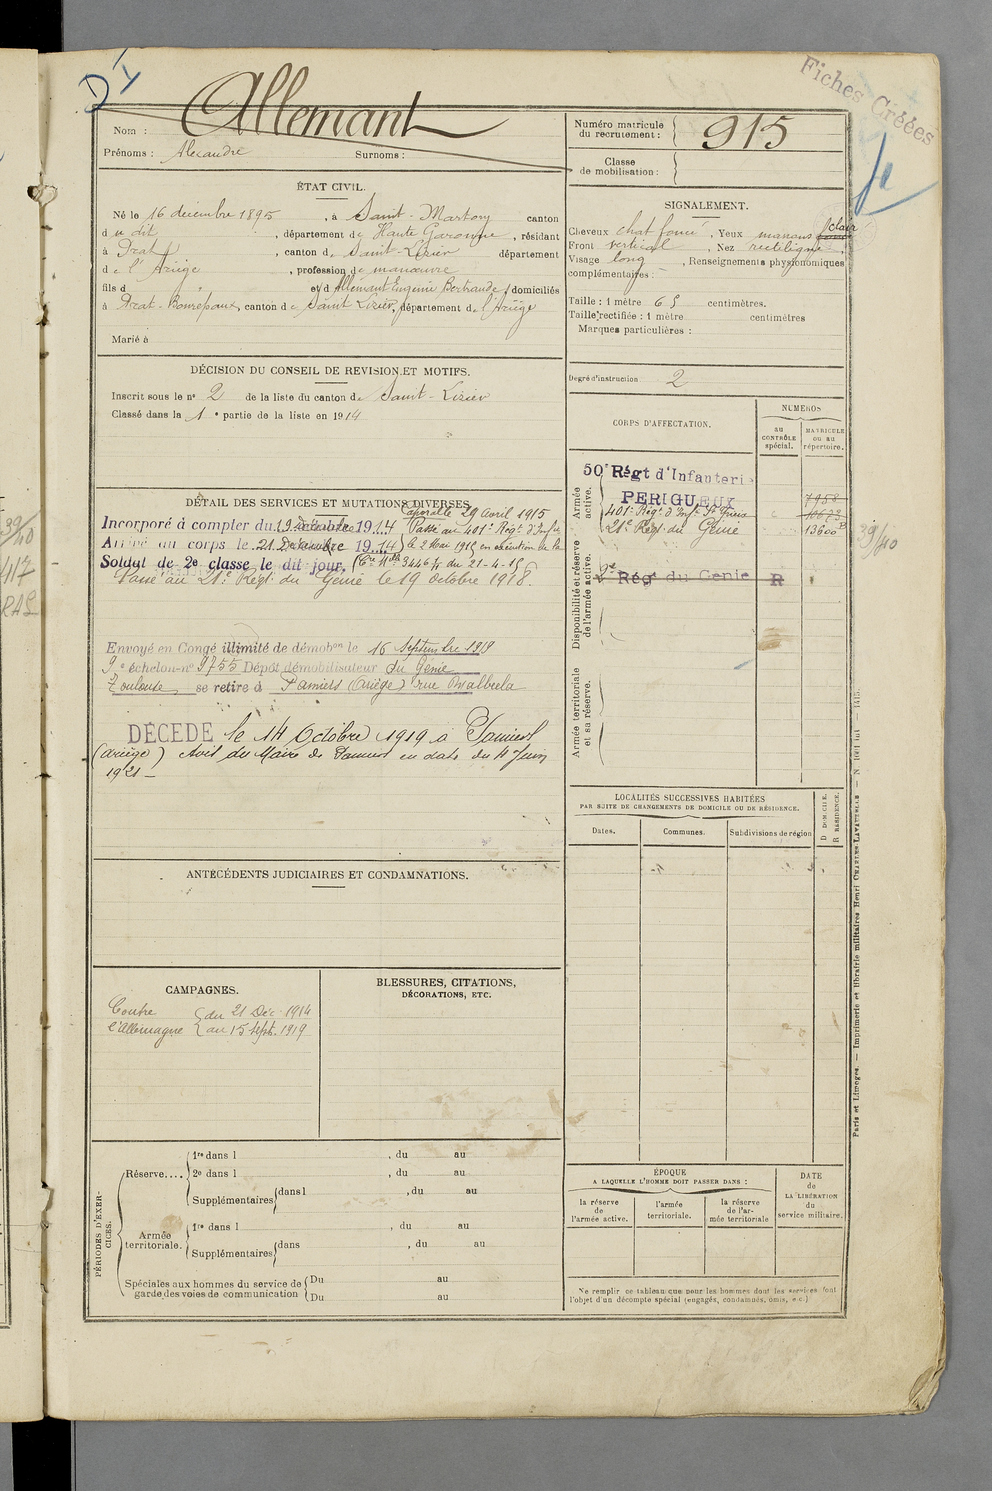 D I
Fiches Créées
Allemant
Nom :
Prénoms : Alexandre Surnoms :
Numéro matricule du recrutement : 915
Classe de mobilisation :
ÉTAT CIVIL.
Né le 16 décembre 1895, à Saint-Martory canton
du dit, département de Haute Garonne, résidant
à Prat, canton de Saint-Lizier département
de l'Ariège, profession de manœuvre
fils d et d Allemant Eugénie Bertrande, domiciliés
à Prat-Bonrepaux, canton de Saint Lizier, département de l'Ariège
Marié à
SIGNALEMENT.
Cheveux chat foncé, Yeux marrons clair
Front vertical, Nez rectiligne
Visage long, Renseignements physionomiques
complémentaires :
Taille : 1 mètre 65 centimètres.
Taille rectifiée : 1 mètre centimètres
Marques particulières :
Degré d'instruction 2
DÉCISION DU CONSEIL DE REVISION ET MOTIFS.
Inscrit sous le n° 2 de la liste du canton de Saint-Lizier
Classé dans la 1e partie de la liste en 1914
CORPS D'AFFECTATION.
NUMÉROS
au CONTRÔLE spécial.
MATRICULE ou au répertoire.
Armée active.
50e Régt d'Infanterie
PERIGUEUX 7958
401e Rég. d'Inf.
21e Rég. du Génie 13600
Disponibilité et réserve de l'armée active.
2e Régt du Génie R
Armée territoriale et sa réserve.
DÉTAIL DES SERVICES ET MUTATIONS DIVERSES.
Incorporé à compter du 19 Décembre 1914
Arrivé au corps le 21 Décembre 1914
Soldat de 2e classe le dit jour.
Caporal le 29 avril 1915
Passé au 401e Rég. d'Inf.ie
le 2 Mai 1915 en exécution de la
du 21-4-15
Passé au 21e Régt du Génie le 19 Octobre 1918.
Envoyé en Congé illimité de démobon le 16 Septembre 1919
9e échelon n° 9755 Dépôt démobilisateur du Génie
Toulouse se retire à Pamiers (Ariège) rue
DÉCÉDÉ le 14 Octobre 1919 à Pamiers
(Ariège) Avis du Maire de Pamiers en date du 4 Juin
1921 -
39/40
417
RAL
39/40
LOCALITÉS SUCCESSIVES HABITÉES
PAR SUITE DE CHANGEMENTS DE DOMICILE OU DE RÉSIDENCE.
Dates. Communes. Subdivisions de région
D DOMICILE.
R RÉSIDENCE.
ANTÉCÉDENTS JUDICIAIRES ET CONDAMNATIONS.
CAMPAGNES.
Contre l'Allemagne
du 21 Déc. 1914
au 15 Sept. 1919
BLESSURES, CITATIONS,
DÉCORATIONS, ETC.
PÉRIODES D'EXERCICES.
Réserve....
1re dans l , du au
2e dans l , du au
Supplémentaires dans l , du au
Armée territoriale.
1re dans l , du au
Supplémentaires dans , du au
Spéciales aux hommes du service de garde des voies de communication
Du au
Du au
ÉPOQUE
A LAQUELLE L'HOMME DOIT PASSER DANS :
la réserve de l'armée active.
l'armée territoriale.
la réserve de l'armée territoriale
DATE de LA LIBÉRATION du service militaire.
Ne remplir ce tableau que pour les hommes dont les services font
l'objet d'un décompte spécial (engagés, condamnés, omis, etc.)
Paris et Limoges. — Imprimerie et librairie militaires Henri CHARLES-LAVAUZELLE